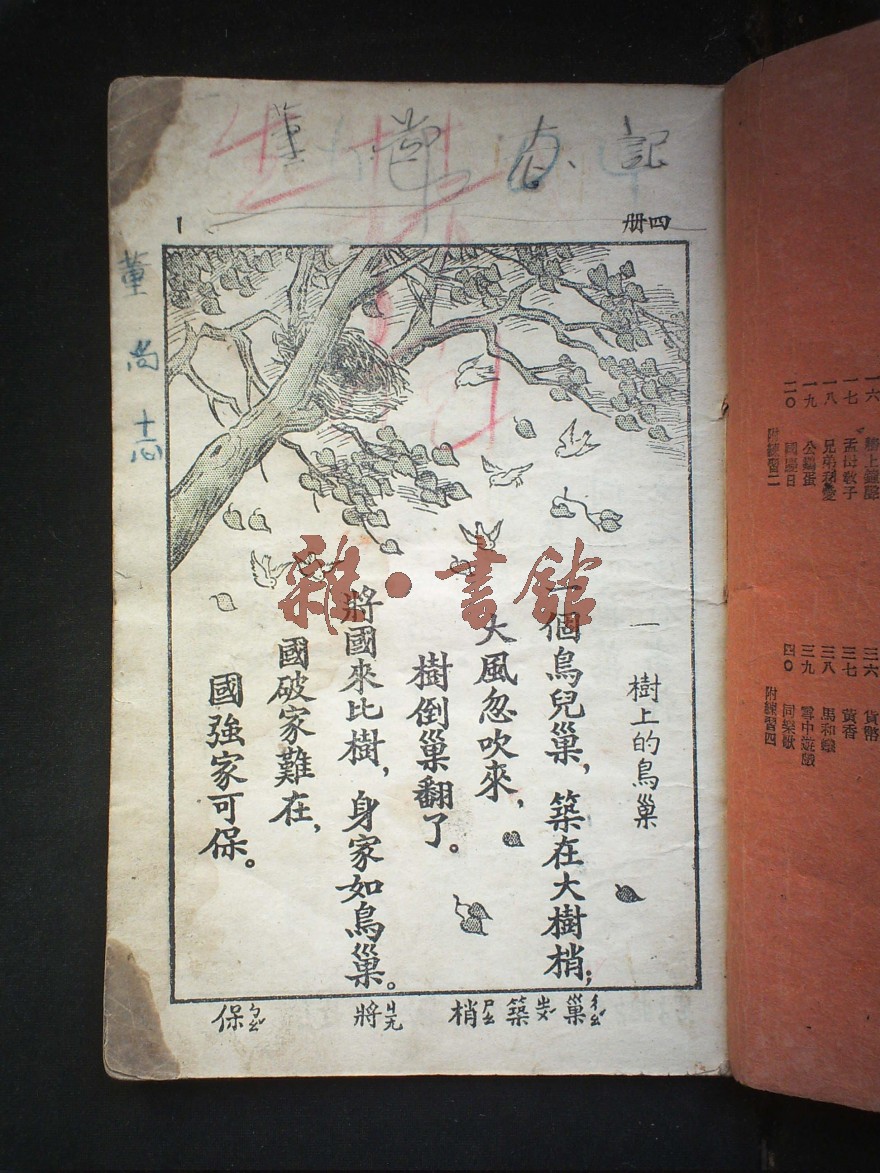 董尚志記
四册
1
董
尚
志
雜·書館
一 樹上的鳥巢
一個鳥兒巢，築在大樹梢；
大風忽吹來，
樹倒巢翻了。
將國來比樹，身家如鳥巢。
國破家難在，
國強家可保。
巢ㄔㄠ
築ㄓㄨ
梢ㄕㄠ
將ㄐㄤ
保ㄅㄠ
一六
一七 孟母教子
一八 兄弟私愛
一九 公雞蛋
二〇 國慶日
附練習二
三六 貨幣
三七 黃香
三八 馬和騾
三九 雪中遊戲
四〇 同樂會
附練習四